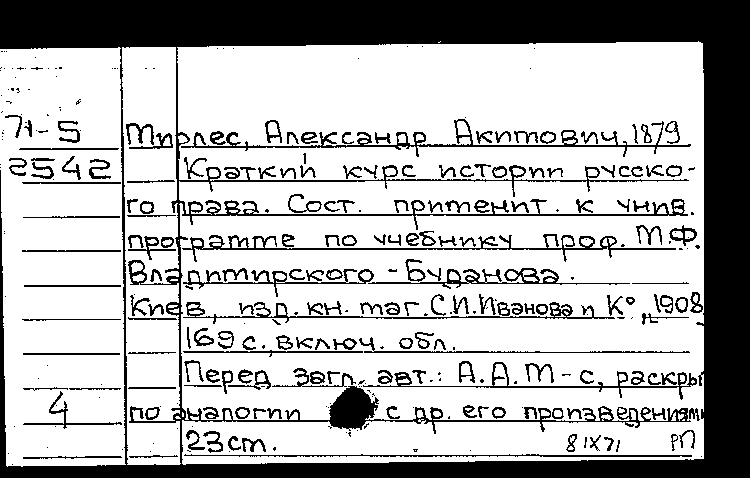 71-5 Мирлес, Александр Акимович, 1879
2542 Краткий курс истории русско-
го права. Сост. применит. к унив.
программе по учебнику проф. М.Ф.
Владимирского-Буданова.
Киев, изд. кн. маг. С.И. Иванова и К°, 1908,
169 с., включ. обл.
Перед загл. авт.: А.А.М-с, раскры
4 по аналогии с др. его произведениями
23 см. 8 IX 71 РП